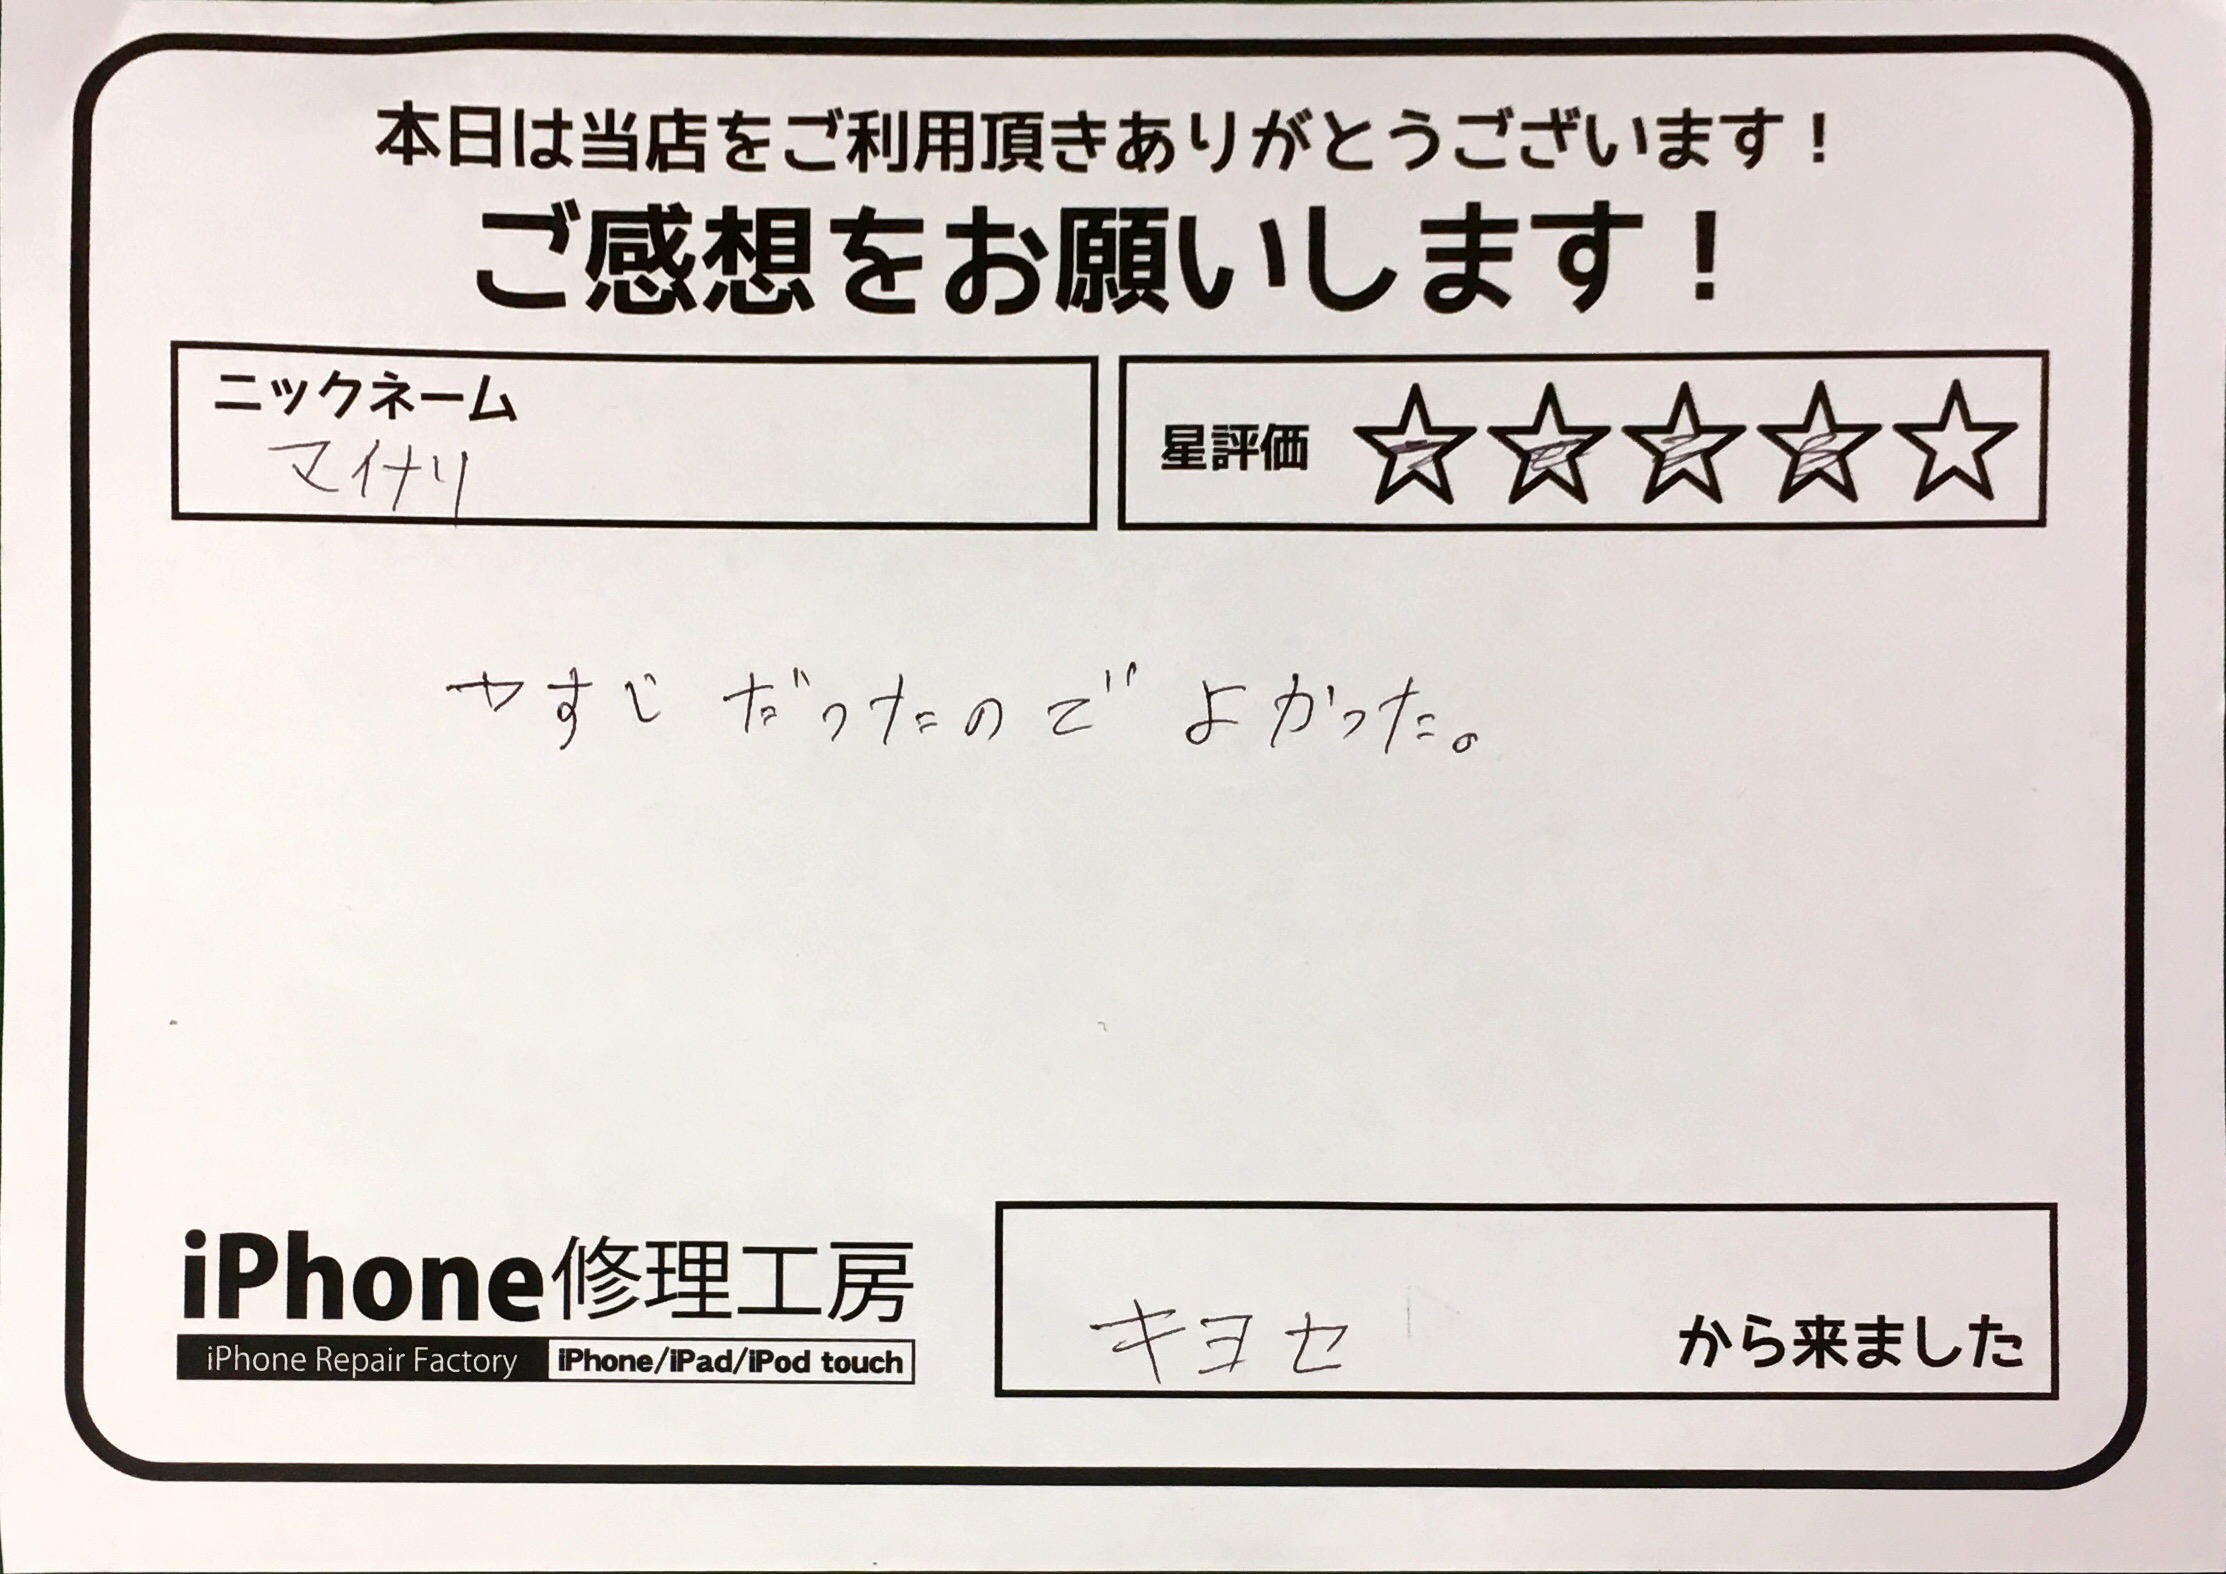 本日は当店をご利用頂きありがとうございます！
ご感想をお願いします！
ニックネーム
マイナリ
星評価 ☆☆☆☆☆
やすじだったのでよかった。
iPhone修理工房
iPhone Repair Factory iPhone/iPad/iPod touch
キヨセ から来ました